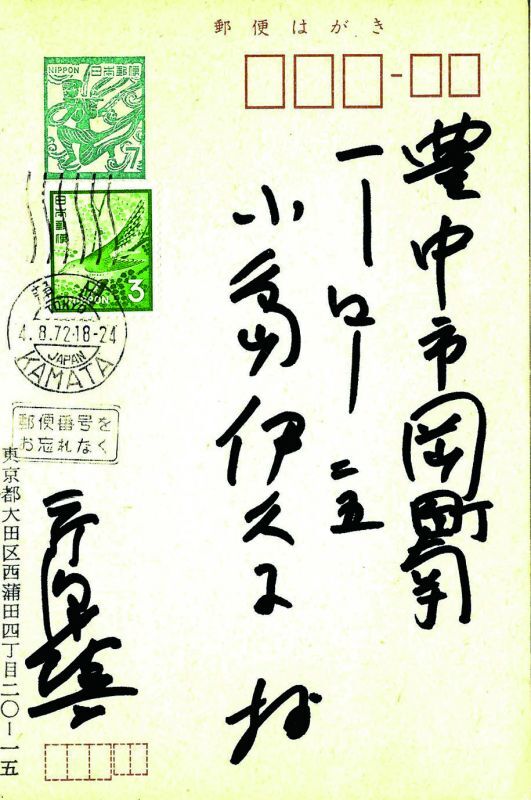 郵便はがき
NIPPON 日本郵便
7
日本郵便
NIPPON 3
TOKYO
4.8.72.18-24
JAPAN
KAMATA
郵便番号を
お忘れなく
豊中市岡町南
小島伊久子 様
東京都大田区西蒲田四丁目二〇ー一五